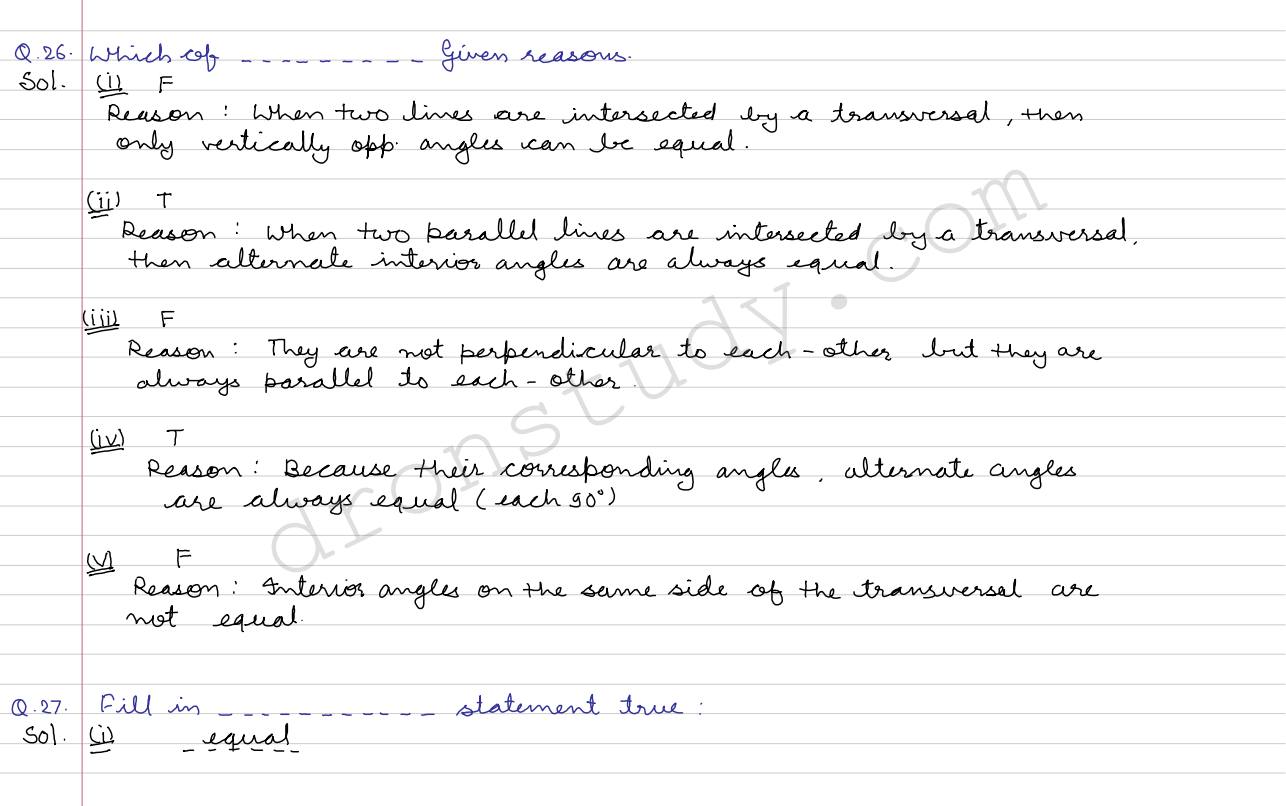 Q.26. Which of --------- Given reasons.
Sol. (i) F
Reason : When two lines are intersected by a transversal, then
only vertically opp. angles can be equal.
(ii) T
Reason : When two parallel lines are intersected by a transversal,
then alternate interior angles are always equal.
(iii) F
Reason : They are not perpendicular to each-other but they are
always parallel to each-other.
(iv) T
Reason : Because their corresponding angles, alternate angles
are always equal (each 90°)
(v) F
Reason : Interior angles on the same side of the transversal are
not equal.
Q.27. Fill in ----------- statement true :
Sol. (i) equal
dronstudy.com